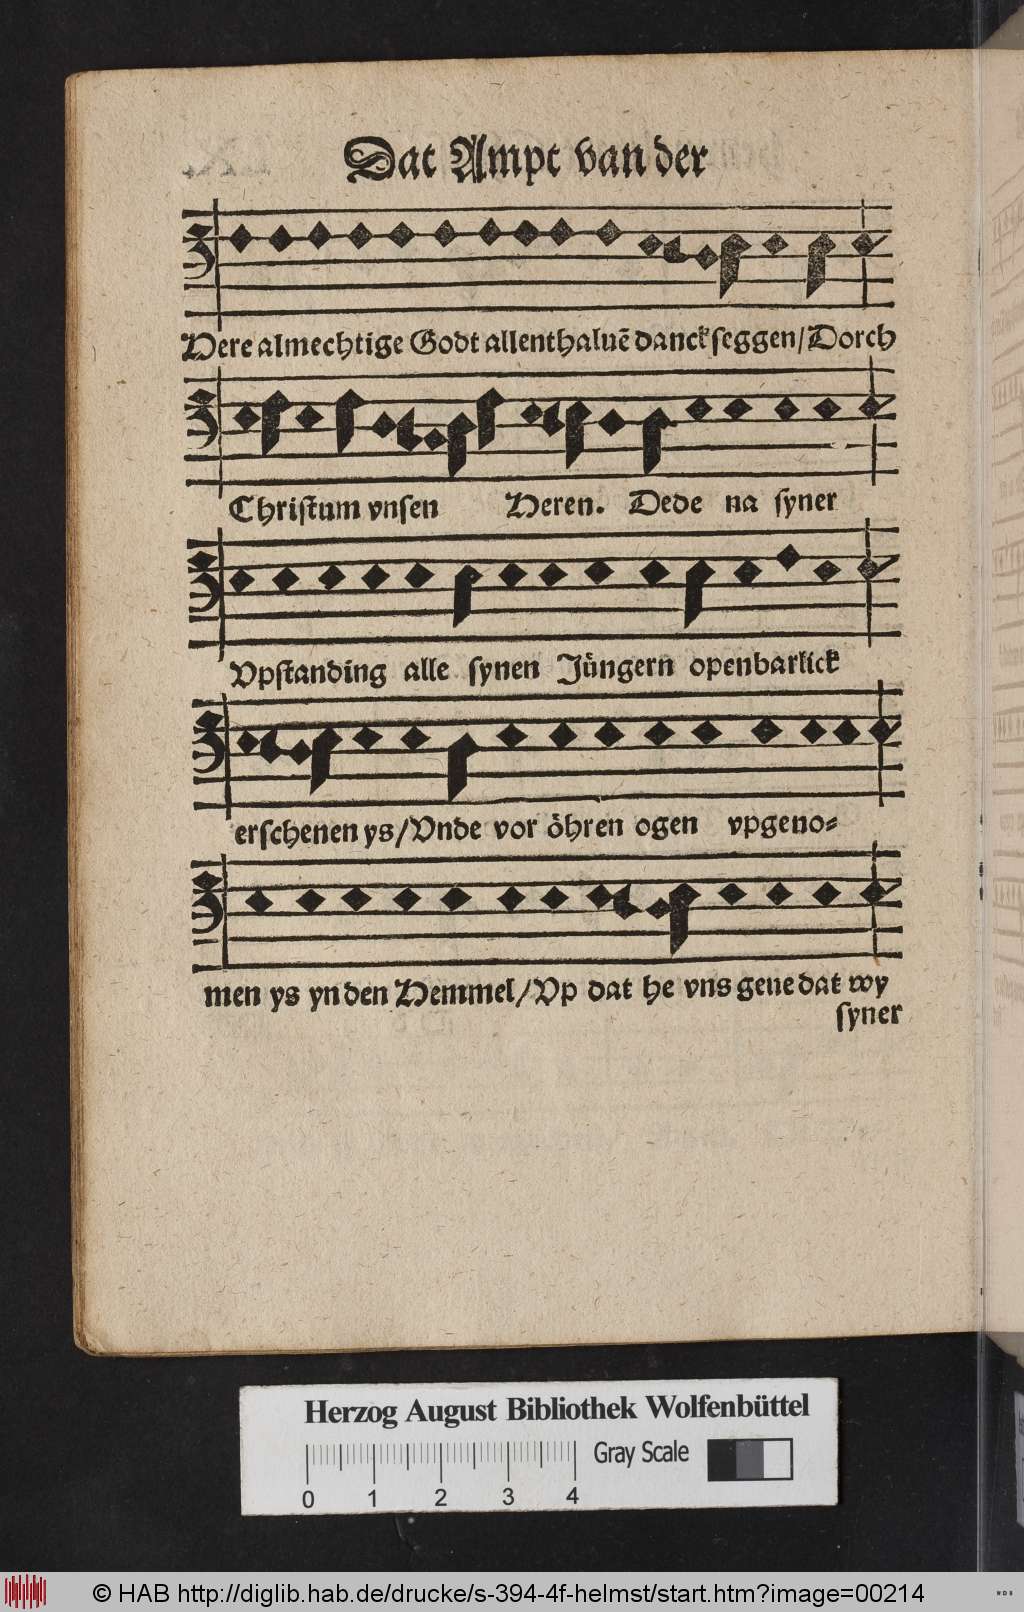 Dat Ampt van der
Here almechtige Godt allenthaluẽ danckseggen/Dorch
Christum vnsen Heren. Dede na syner
Vpstanding alle synen Jüngern openbarlick
erschenen ys/Vnde vor öhren ogen vpgeno=
men ys yn den Hemmel/Vp dat he vns geue dat wy
syner
Herzog August Bibliothek Wolfenbüttel
Gray Scale
0 1 2 3 4
© HAB http://diglib.hab.de/drucke/s-394-4f-helmst/start.htm?image=00214